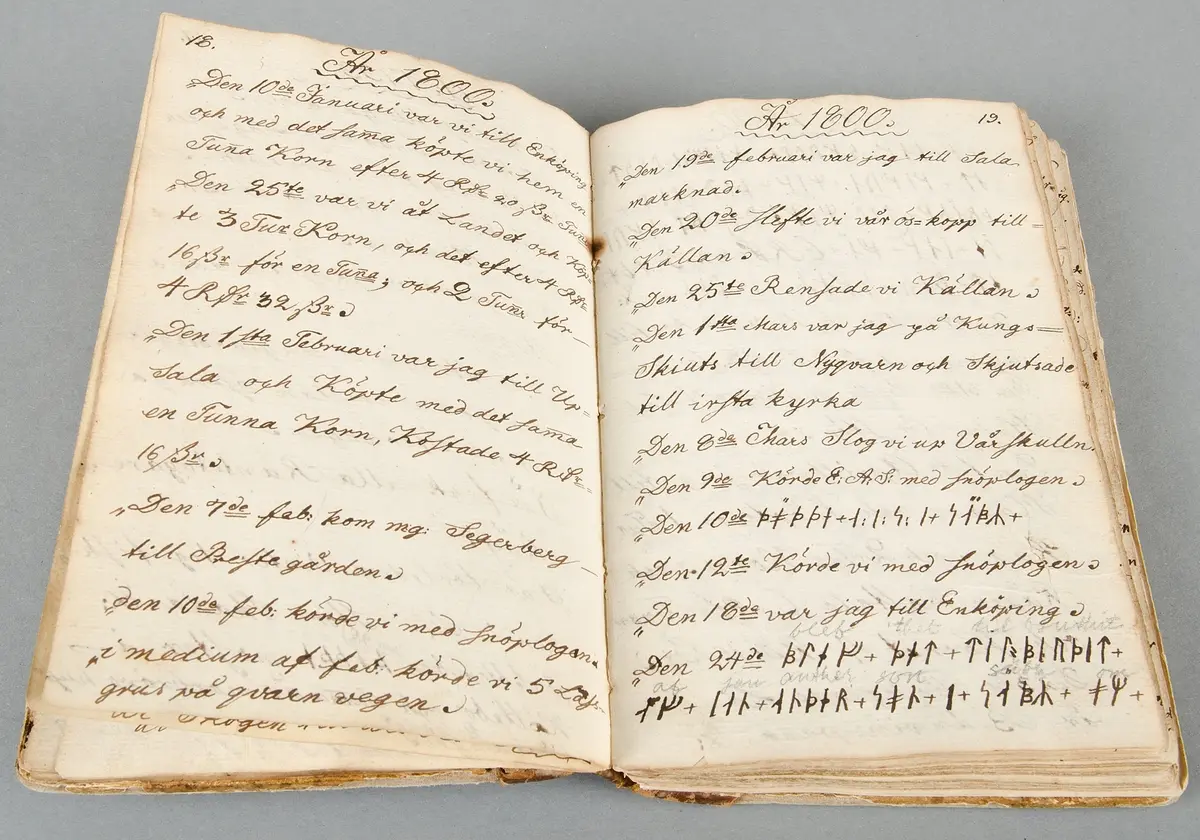 18.
År 1800.
„Den 10de Januari var vi till Enköping
och med det samma köpte vi hem en
Tunna Korn efter 4 Rdr 20 ßr Tun̄
„Den 25te var vi åt Landet och köp-
te 3 Tur Korn, och det efter 4 Rdr
16 ßr för en Tuna; och 2 Tunr för
4 Rdr 32 ßr.
„Den 1sta Februari var jag till Up-
Sala och Köpte med det sam̄a
en Tunna Korn, Kostade 4 Rdr-
16 ßr.
„Den 7de feb: kom mg: Segerberg
till Prestegården.
„den 10de feb: körde vi med snöplogen.
„i medium af feb: körde vi 5 Lass
grus på qvarn vegen.
År 1800.
19.
„Den 19de februari var jag till Sala
marknad.
„Den 20de Slefte vi vår ös=kopp till=
Källan.
„Den 25te Rensade vi Källan.
„Den 1sta Mars var jag på Kungs=
Skiuts till Nyqvarn och Skjutsade
till irsta kyrka
„Den 8de Mars Slog vi up Vårskulln.
„Den 9de Körde E: A: S: med snöplogen.
„Den 10de
„Den 12te Körde vi med snöplogen.
„Den 18de var jag till Enköping.
„Den 24de ᛒᛚ